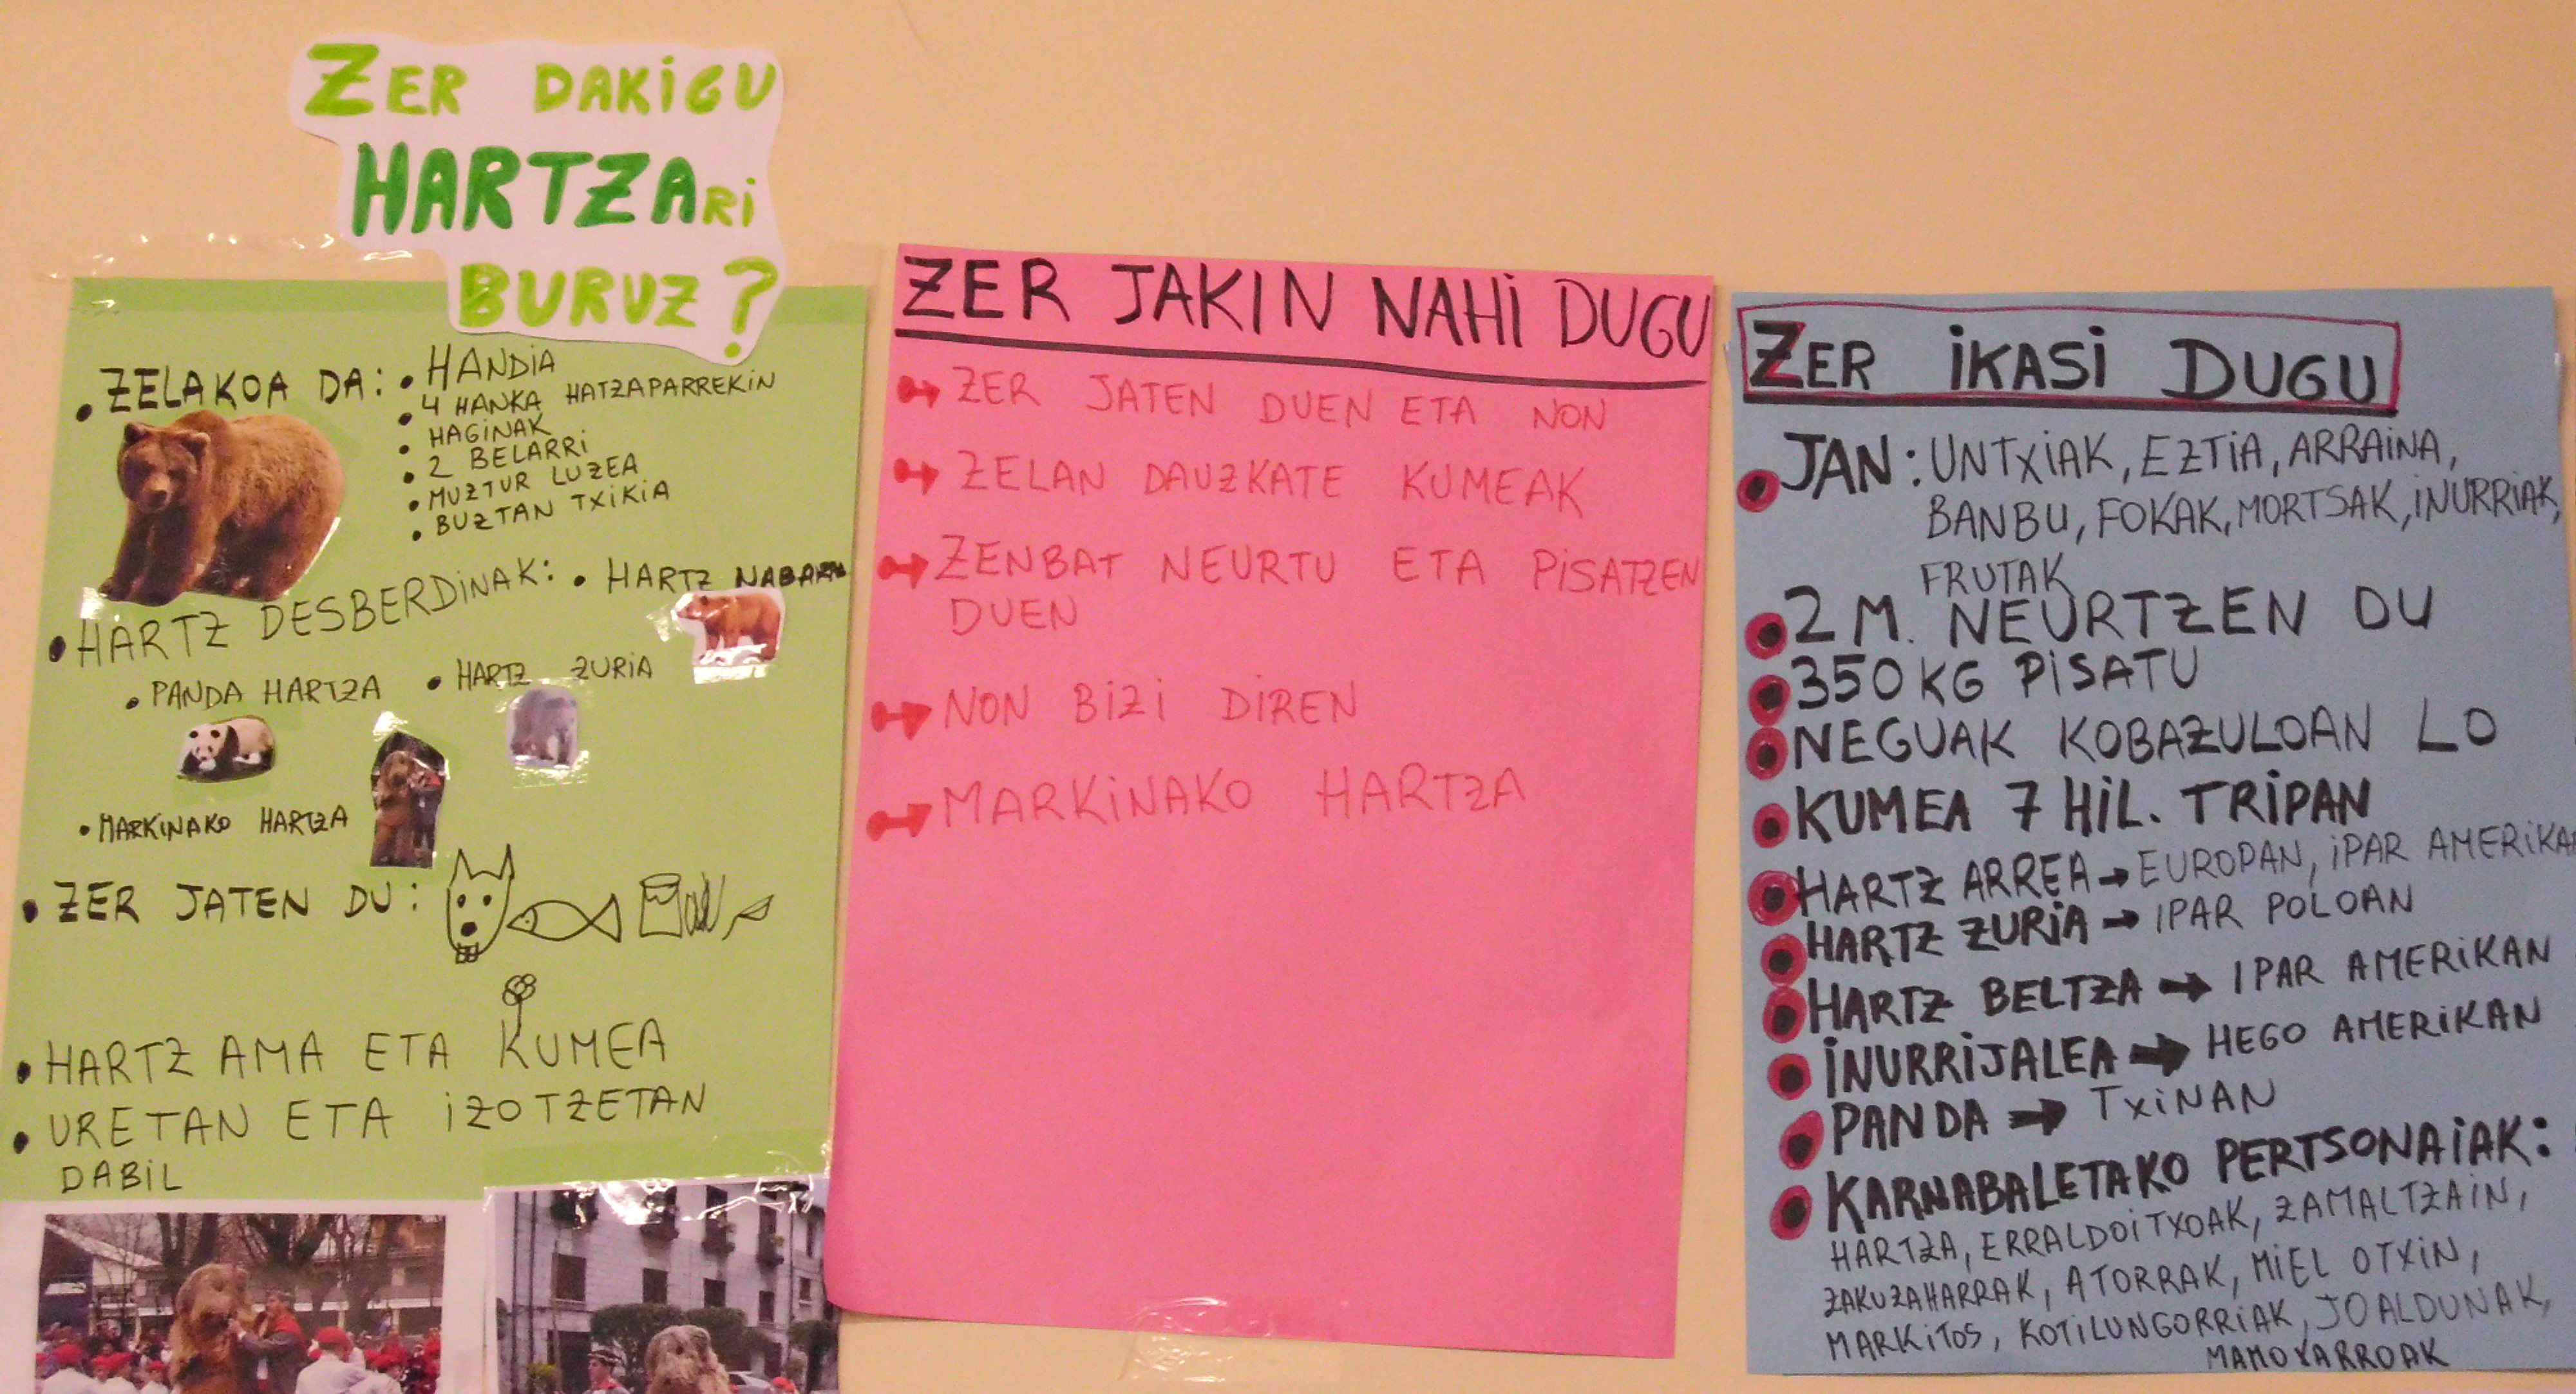 ZER DAKiGU
HARTZARi
BURUZ?
• ZELAKOA DA: • HANDiA
• 4 HANKA HATZAPARREKiN
• HAGiNAK
• 2 BELARRi
• MUZTUR LUZEA
• BUZTAN TXiKiA
• HARTZ DESBERDiNAK: • HARTZ NABARRA
• PANDA HARTZA • HARTZ ZURiA
• MARKiNAKO HARTZA
• ZER JATEN DU:
• HARTZ AMA ETA KUMEA
• URETAN ETA iZOTZETAN
DABiL
ZER JAKIN NAHi DUGU
ZER JATEN DUEN ETA NON
ZELAN DAUZKATE KUMEAK
ZENBAT NEURTU ETA PiSATZEN
DUEN
NON BiZi DiREN
MARKiNAKO HARTZA
ZER iKASi DUGU
• JAN: UNTXiAK, EZTiA, ARRAiNA,
BANBU, FOKAK, MORTSAK, iNURRiAK,
FRUTAK
• 2 M. NEURTZEN DU
• 350 KG PiSATU
• NEGUAK KOBAZULOAN LO
• KUMEA 7 HiL. TRiPAN
• HARTZ ARREA → EUROPAN, iPAR AMERiKAN
• HARTZ ZURiA → IPAR POLOAN
• HARTZ BELTZA → IPAR AMERiKAN
• iNURRiJALEA → HEGO AMERiKAN
• PANDA → TXiNAN
• KARNABALETAKO PERTSONAiAK:
HARTZA, ERRALDOiTXOAK, ZAMALTZAiN,
ZAKUZAHARRAK, ATORRAK, MiEL OTXiN,
MARKiTOS, KOTiLUNGORRiAK, JOALDUNAK,
MAMOXARROAK